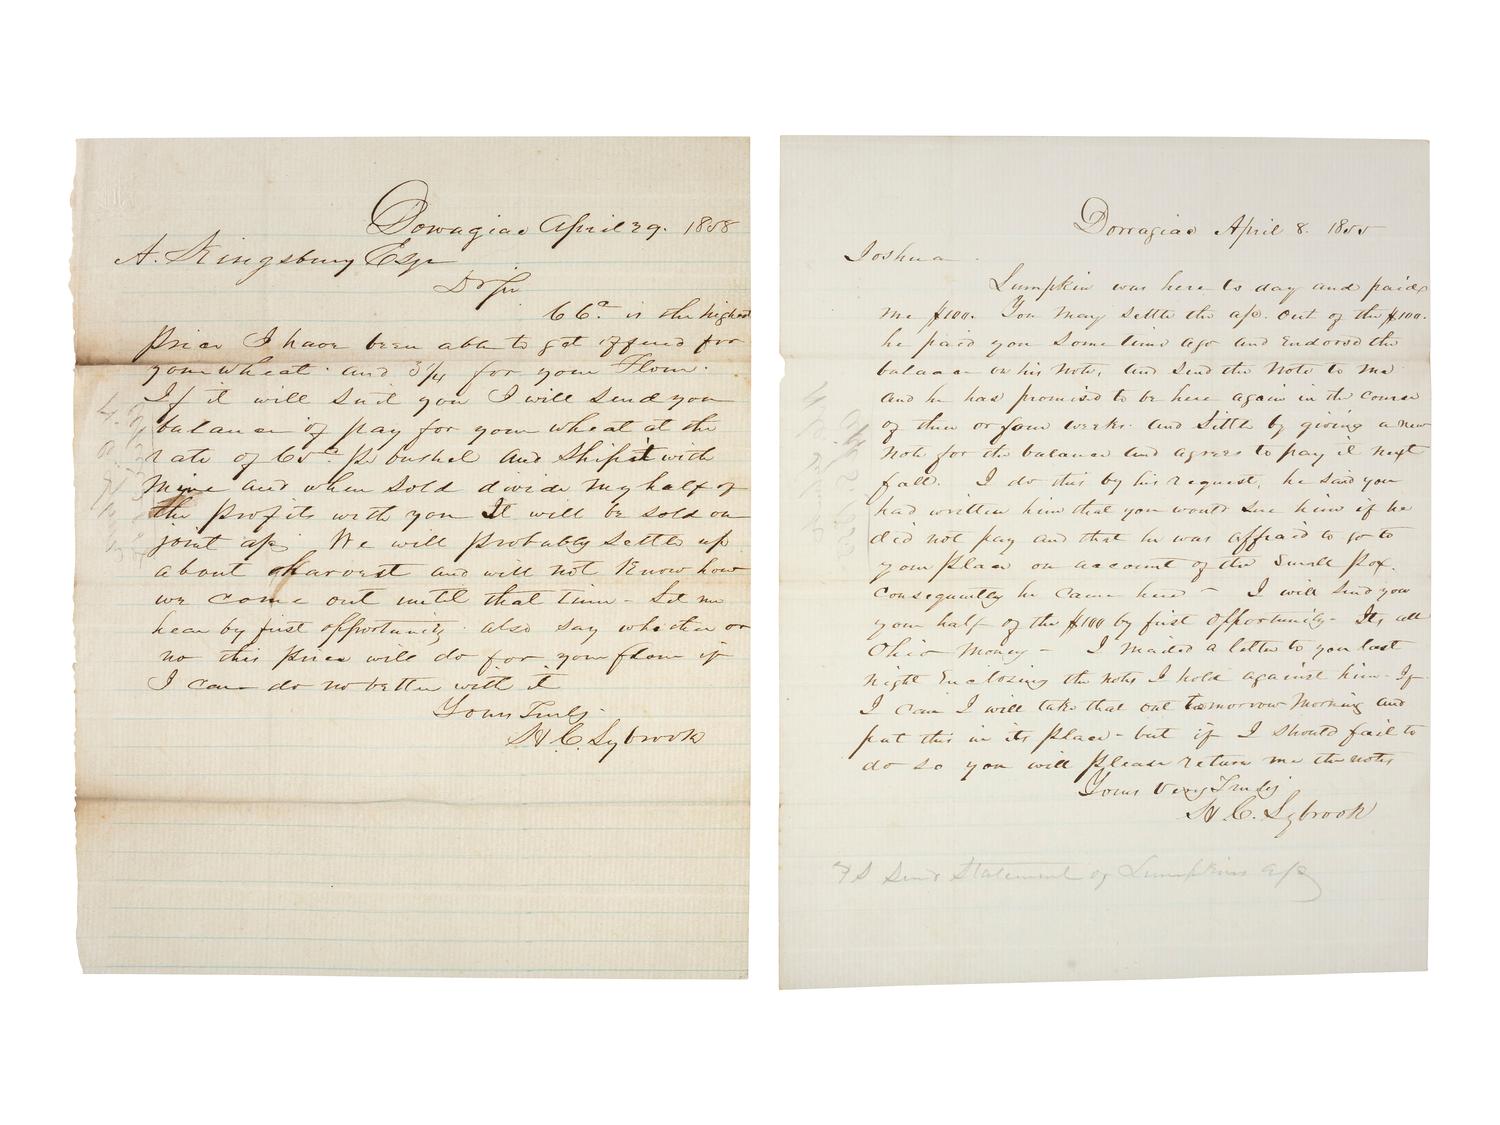 Dowagiac April 29. 1858
A. Kingsbury Esqr
Dr Sir
66 cts is the highest
price I have been able to get offered for
your wheat. and 3/4 for your Flour.
If it will suit you I will send you
balance of pay for your wheat at the
rate of 65 cts pr bushel and Ship it with
Mine and when sold divide my half of
the profits with you It will be sold on
joint a/c We will probably settle up
about Harvest and will not Know how
we come out until that time - Let me
hear by first opportunity. also say whether or
no this price will do for your flour if
I can do no better with it
Yours Truly
H. C. Lybrook
Dowagiac April 8. 1855
Joshua
Lumpkin was here to day and paid
me $100. You may settle the a/c. out of the $100.
he paid you some time ago and Endorse the
balance on his Note, and send the Note to me
and he has promised to be here again in the course
of three or four weeks. and Settle by giving a new
note for the balance and agrees to pay it next
fall. I do this by his request, he said you
had written him that you would Sue him if he
did not pay and that he was affraid to go to
your place on account of the Small Pox.
Consequently he came here - I will send you
your half of the $100 by first Opportunity - Its all
Ohio Money - I mailed a letter to you last
night Enclosing the notes I hold against him - If
I can I will take that out tomorrow Morning and
put this in its place - but if I should fail to
do so you will please return me the notes
Yours Very Truly
H. C. Lybrook
P S Send Statement of Lumpkins a/c